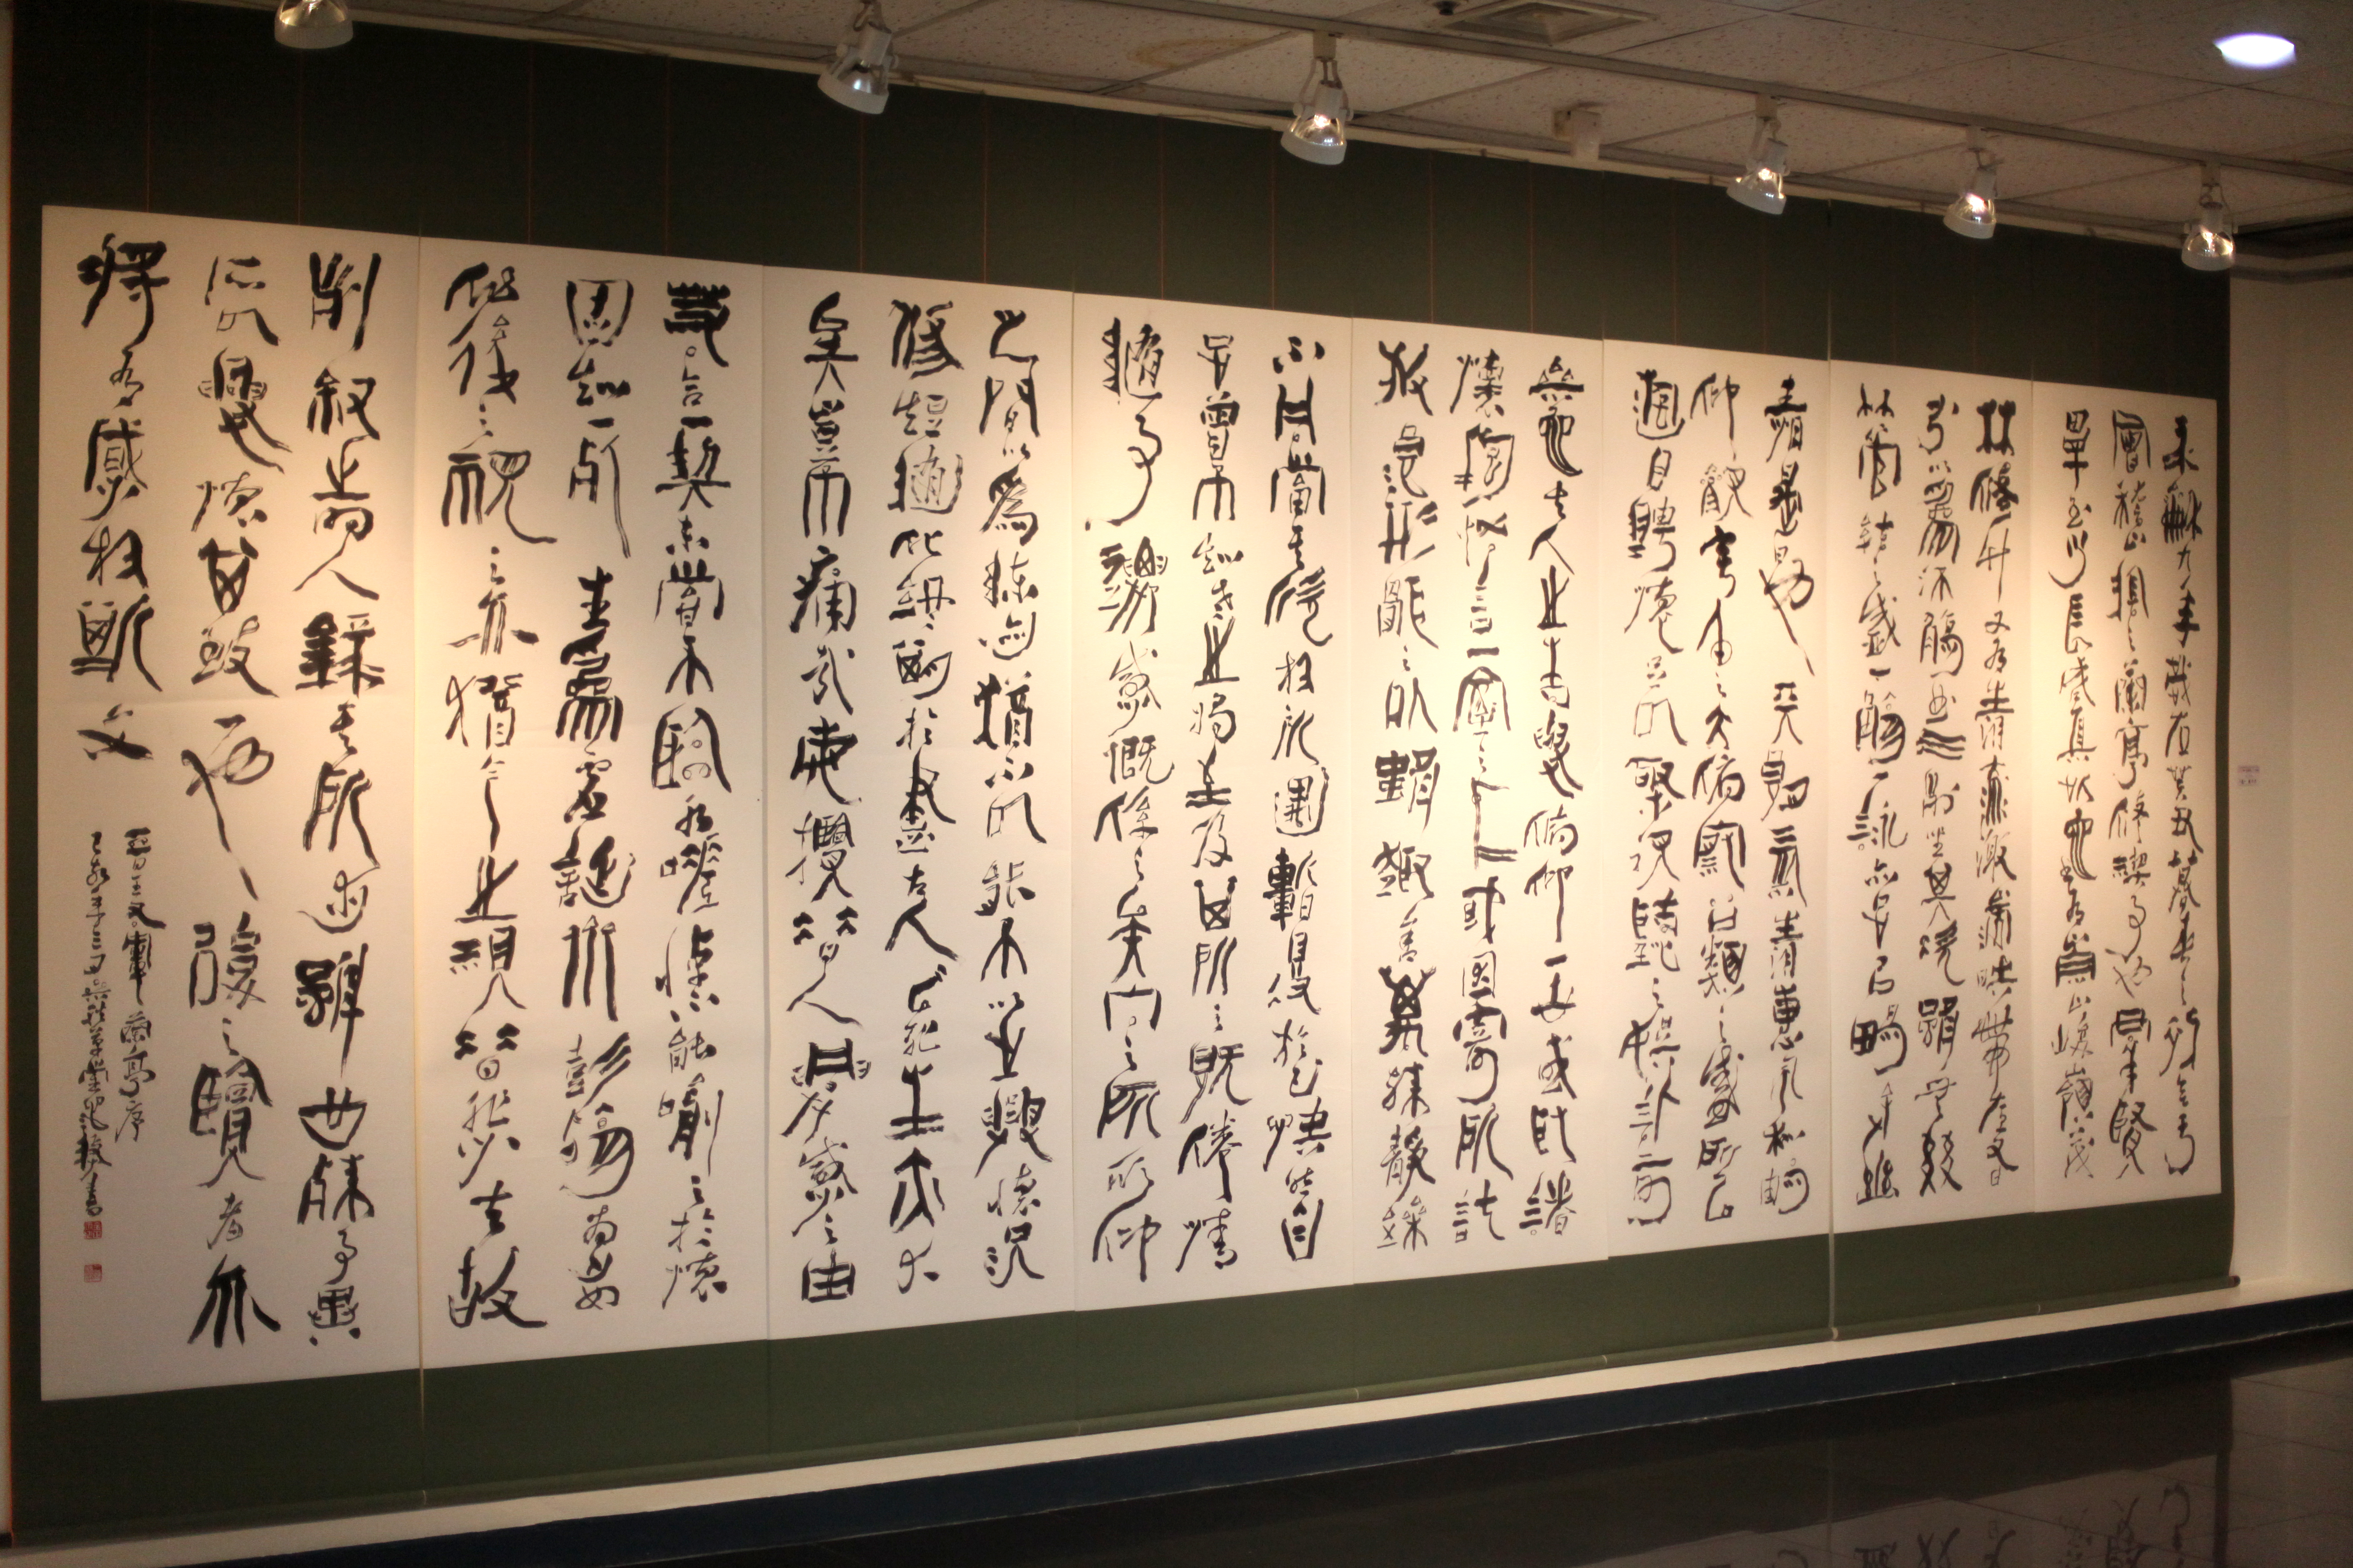 永和九年歲在癸丑暮春之初會于
會稽山陰之蘭亭脩禊事也羣賢
畢至少長咸集此地有崇山峻嶺茂
林脩竹又有清流激湍映帶左右
引以為流觴曲水列坐其次雖無絲
竹管弦之盛一觴一詠亦足以暢敘幽
情是日也天朗氣清惠風和暢
仰觀宇宙之大俯察品類之盛所以
遊目騁懷足以極視聽之娛信可
樂也夫人之相與俯仰一世或取諸
懷抱悟言一室之內或因寄所託
放浪形骸之外雖趣舍萬殊靜躁
不同當其欣於所遇暫得於己快然自
足曾不知老之將至及其所之既倦情
隨事遷感慨係之矣向之所欣俛仰
之間以為陳迹猶不能不以之興懷況
脩短隨化終期於盡古人云死生亦大
矣豈不痛哉每攬昔人興感之由
若合一契未嘗不臨文嗟悼不能喻之於懷
固知一死生為虛誕齊彭殤為妄
作後之視今亦猶今之視昔悲夫故
列敘時人錄其所述雖世殊事異
所以興懷其致一也後之覽者亦
將有感於斯文
晉王右軍蘭亭序